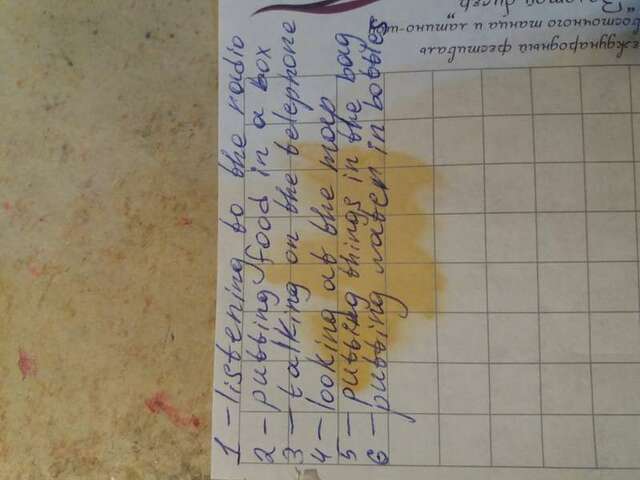 1 - listening to the radio
2 - putting food in a box
3 - talking on the telephone
4 - looking at the map
5 - putting things in the bag
6 - putting water in bottles
еждународный фестиваль
восточного танца и латино-шоу
"Золотой бисер"